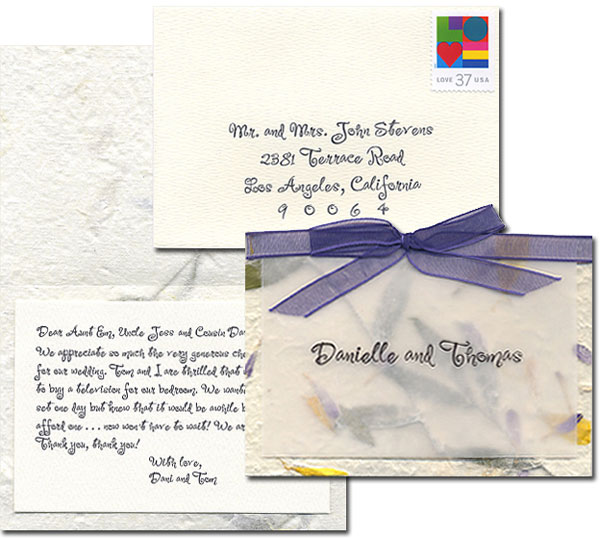 LOVE 37 USA
Mr. and Mrs. John Stevens
2381 Terrace Road
Los Angeles, California
90064
Danielle and Thomas
Dear Aunt Em, Uncle Jess and Cousin
We appreciate so much the very generous
for our wedding. Tom and I are thrilled that
to buy a television for our bedroom. We
set one day but knew that it would be awhile
afford one . . . now won't have to wait! We
Thank you, thank you!
With love,
Dani and Tom